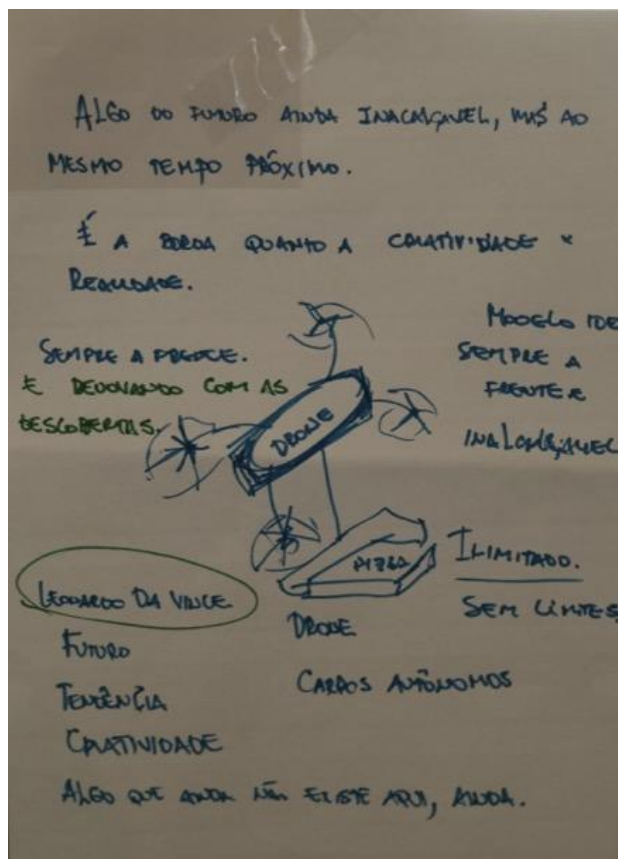 ALGO DO FUTURO AINDA INACALÇAVEL, MAS AO
MESMO TEMPO PRÓXIMO.
É A BORDA QUANTO A CRIATIVIDADE ×
REALIDADE.
SEMPRE A FRENTE.
E DEVORANDO COM AS
DESCOBERTAS.
MODELO IDE
SEMPRE A
FRENTE E
INALCANÇAVEL
DRONE
PIZZA
ILIMITADO.
SEM LIMITES
LEONARDO DA VINCE
FUTURO
TENDÊNCIA
CRIATIVIDADE
DRONE
CARROS AUTÔNOMOS
ALGO QUE AINDA NÃO EXISTE AQUI, AINDA.